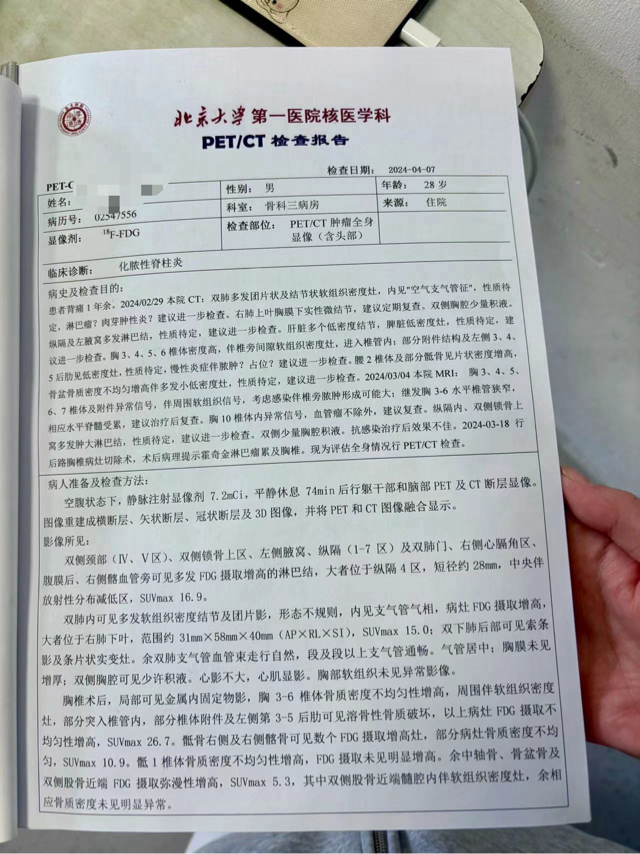 北京大学第一医院核医学科
PET/CT 检查报告
检查日期: 2024-04-07
PET-C
姓名: 性别: 男 年龄: 28 岁
病历号: 02547556 科室: 骨科三病房 来源: 住院
显像剂: ¹⁸F-FDG 检查部位: PET/CT 肿瘤全身显像（含头部）
临床诊断: 化脓性脊柱炎
病史及检查目的:
患者背痛 1 年余。2024/02/29 本院 CT: 双肺多发团片状及结节状软组织密度灶，内见"空气支气管征"，性质待
定，淋巴瘤？肉芽肿性炎？建议进一步检查。右肺上叶胸膜下实性微结节，建议定期复查。双侧胸腔少量积液。
纵隔及左腋窝多发淋巴结，性质待定，建议进一步检查。肝脏多个低密度结节，脾脏低密度灶，性质待定，建
议进一步检查。胸 3、4、5、6 椎体密度高，伴椎旁间隙软组织密度灶，进入椎管内；部分附件结构及左侧 3、4、
5 后肋见低密度灶，性质待定，慢性炎症伴脓肿？占位？建议进一步检查。腰 2 椎体及部分骶骨见片状密度增高，
骨盆骨质密度不均匀增高伴多发小低密度灶，性质待定，建议进一步检查。2024/03/04 本院 MRI: 胸 3、4、5、
6、7 椎体及附件异常信号，伴周围软组织信号，考虑感染伴椎旁脓肿形成可能大；继发胸 3-6 水平椎管狭窄，
相应水平脊髓受累，建议治疗后复查。胸 10 椎体内异常信号，血管瘤不除外，建议复查。纵隔内、双侧锁骨上
窝多发肿大淋巴结，性质待定，建议进一步检查。双侧少量胸腔积液。抗感染治疗后效果不佳。2024-03-18 行
后路胸椎病灶切除术，术后病理提示霍奇金淋巴瘤累及胸椎。现为评估全身情况行 PET/CT 检查。
病人准备及检查方法:
空腹状态下，静脉注射显像剂 7.2mCi，平静休息 74min 后行躯干部和脑部 PET 及 CT 断层显像。
图像重建成横断层、矢状断层、冠状断层及 3D 图像，并将 PET 和 CT 图像融合显示。
影像所见:
双侧颈部（Ⅳ、Ⅴ区）、双侧锁骨上区、左侧腋窝、纵隔（1-7 区）及双肺门、右侧心膈角区、
腹膜后、右侧髂血管旁可见多发 FDG 摄取增高的淋巴结，大者位于纵隔 4 区，短径约 28mm，中央伴
放射性分布减低区，SUVmax 16.9。
双肺内可见多发软组织密度结节及团片影，形态不规则，内见支气管气相，病灶 FDG 摄取增高，
大者位于右肺下叶，范围约 31mm×58mm×40mm（AP×RL×SI），SUVmax 15.0；双下肺后部可见索条
影及条片状实变灶。余双肺支气管血管束走行自然，段及段以上支气管通畅。气管居中；胸膜未见
增厚；双侧胸腔可见少许积液。心影不大，心肌显影。胸部软组织未见异常影像。
胸椎术后，局部可见金属内固定物影，胸 3-6 椎体骨质密度不均匀性增高，周围伴软组织密度
灶，部分突入椎管内，部分椎体附件及左侧第 3-5 后肋可见溶骨性骨质破坏，以上病灶 FDG 摄取不
均匀性增高，SUVmax 26.7。骶骨右侧及右侧髂骨可见数个 FDG 摄取增高灶，部分病灶骨质密度不均
匀，SUVmax 10.9。骶 1 椎体骨质密度不均匀性增高，FDG 摄取未见明显增高。余中轴骨、骨盆骨及
双侧股骨近端 FDG 摄取弥漫性增高，SUVmax 5.3，其中双侧股骨近端髓腔内伴软组织密度灶，余相
应骨质密度未见明显异常。